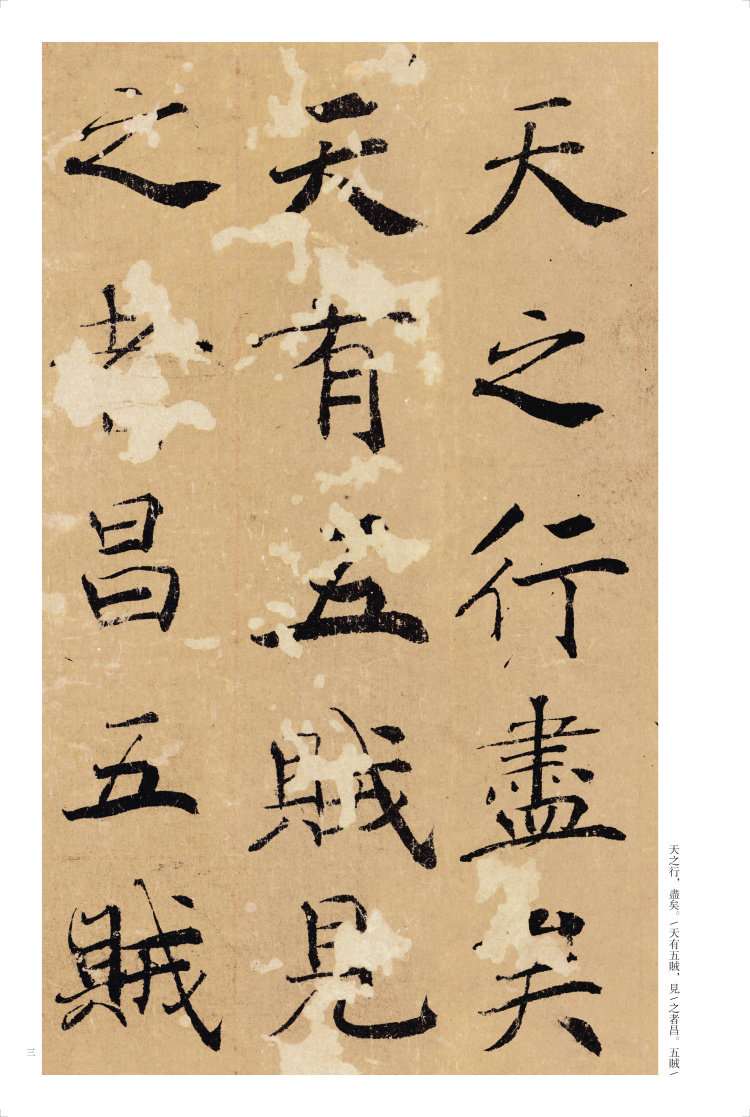 天之行盡矣
天有五賊見
之者昌五賊
天之行，盡矣。/天有五賊，見/之者昌。五賊/
三